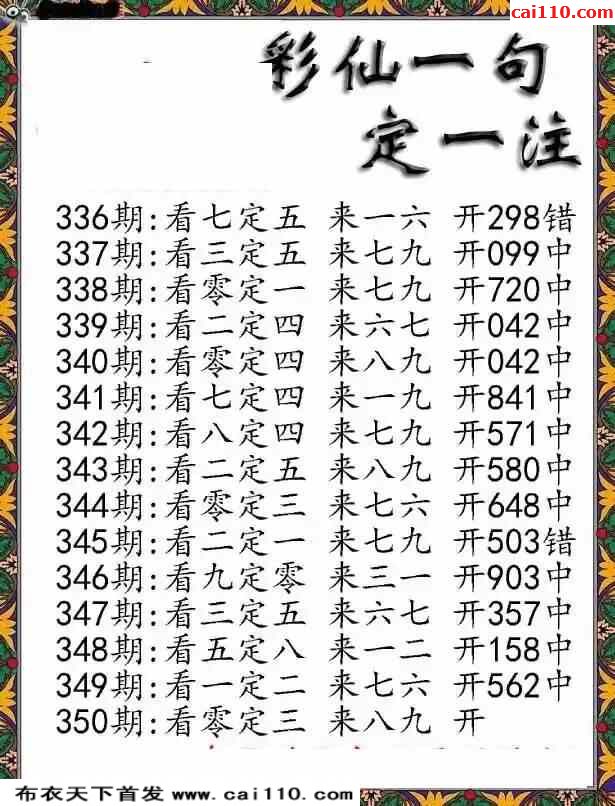 cai110.com
彩仙一句
定一注
336期:看七定五 来一六 开298错
337期:看三定五 来七九 开099中
338期:看零定一 来七九 开720中
339期:看二定四 来六七 开042中
340期:看零定四 来八九 开042中
341期:看七定四 来一九 开841中
342期:看八定四 来七九 开571中
343期:看二定五 来八九 开580中
344期:看零定三 来七六 开648中
345期:看二定一 来七九 开503错
346期:看九定零 来三一 开903中
347期:看三定五 来六七 开357中
348期:看五定八 来一二 开158中
349期:看一定二 来七六 开562中
350期:看零定三 来八九 开
布衣天下首发 www.cai110.com